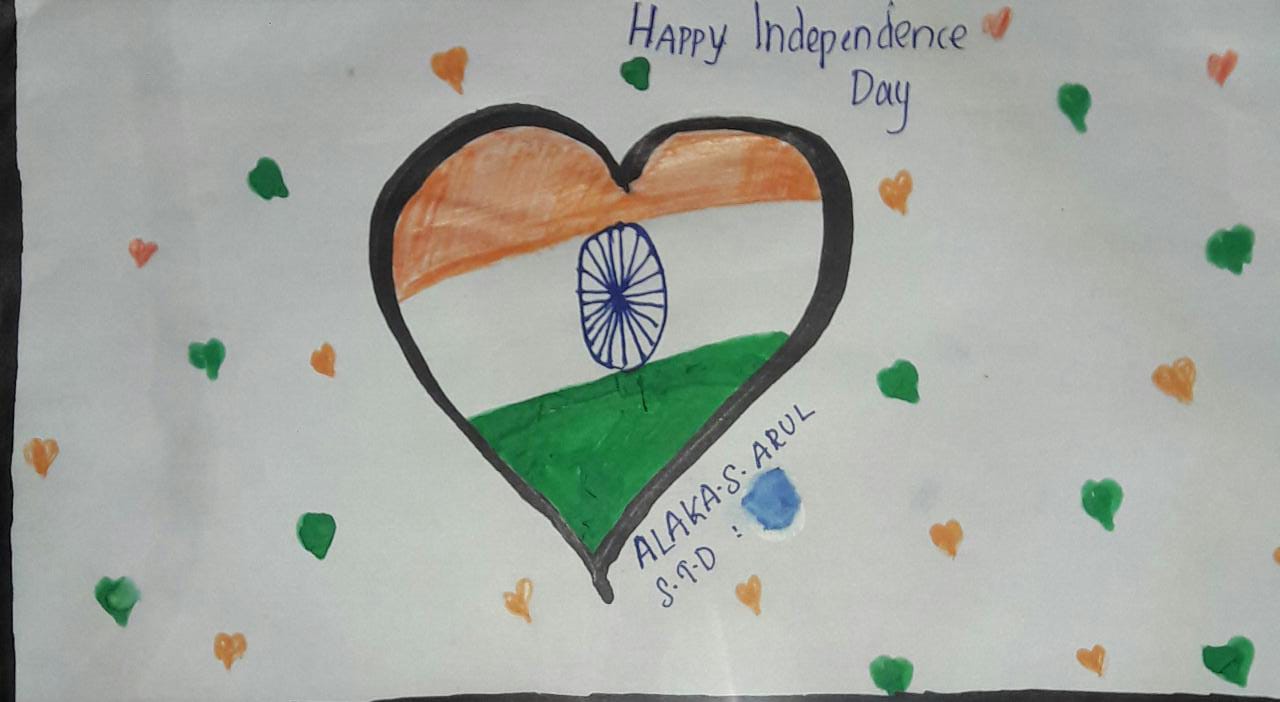 Happy Independence
Day
ALAKA.S. ARUL
S.T.D :